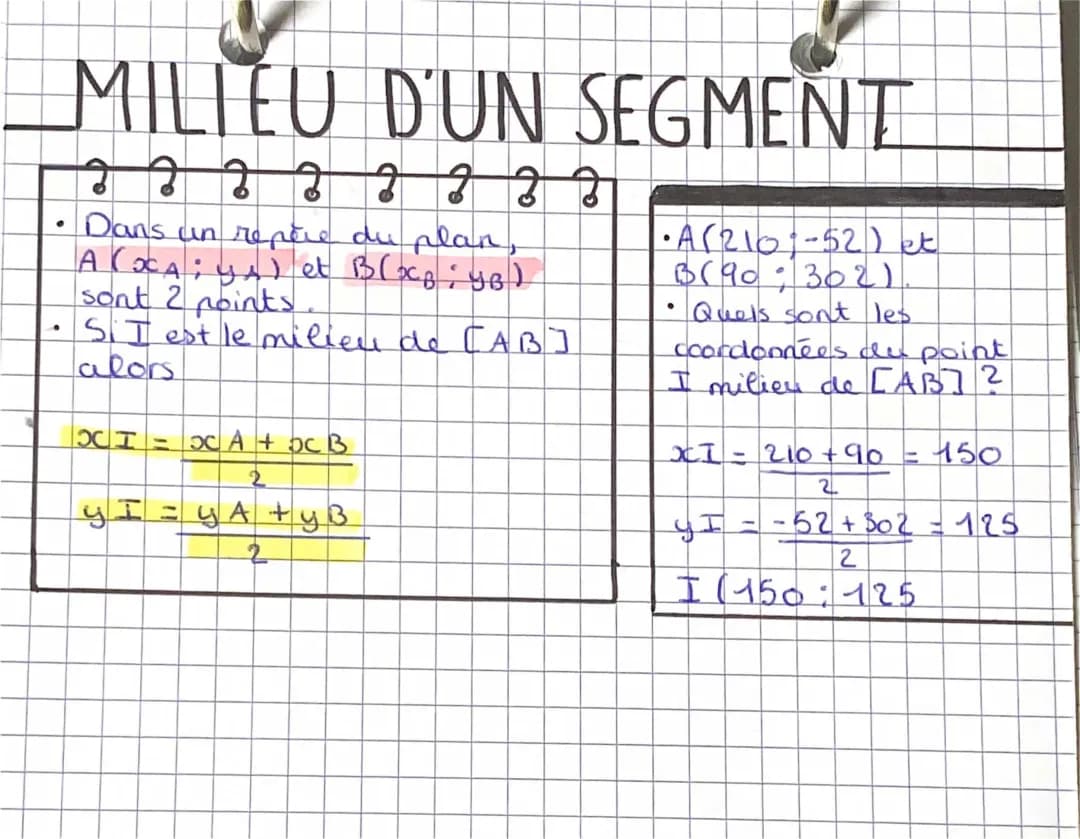 MILIEU D'UN SEGMENT
• Dans un repère du plan,
A(xA ; yA) et B(xB ; yB)
sont 2 points.
• Si I est le milieu de [AB]
alors
xI = xA + xB
2
yI = yA + yB
2
• A(210 ; -52) et
B(90 ; 302).
• Quels sont les
coordonnées du point
I milieu de [AB] ?
xI = 210 + 90 = 150
2
yI = -52 + 302 = 125
2
I (150 ; 125